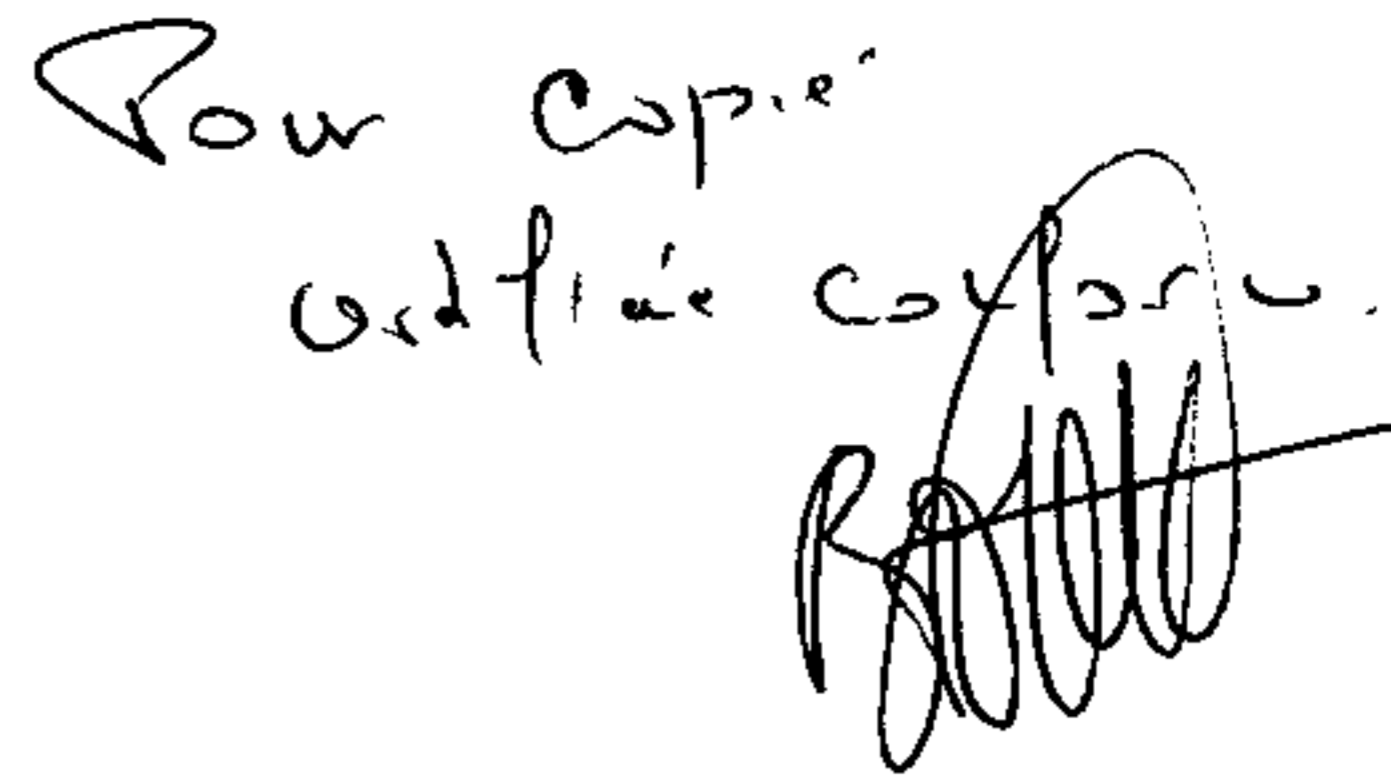 Pour Copie
certifiée conforme.